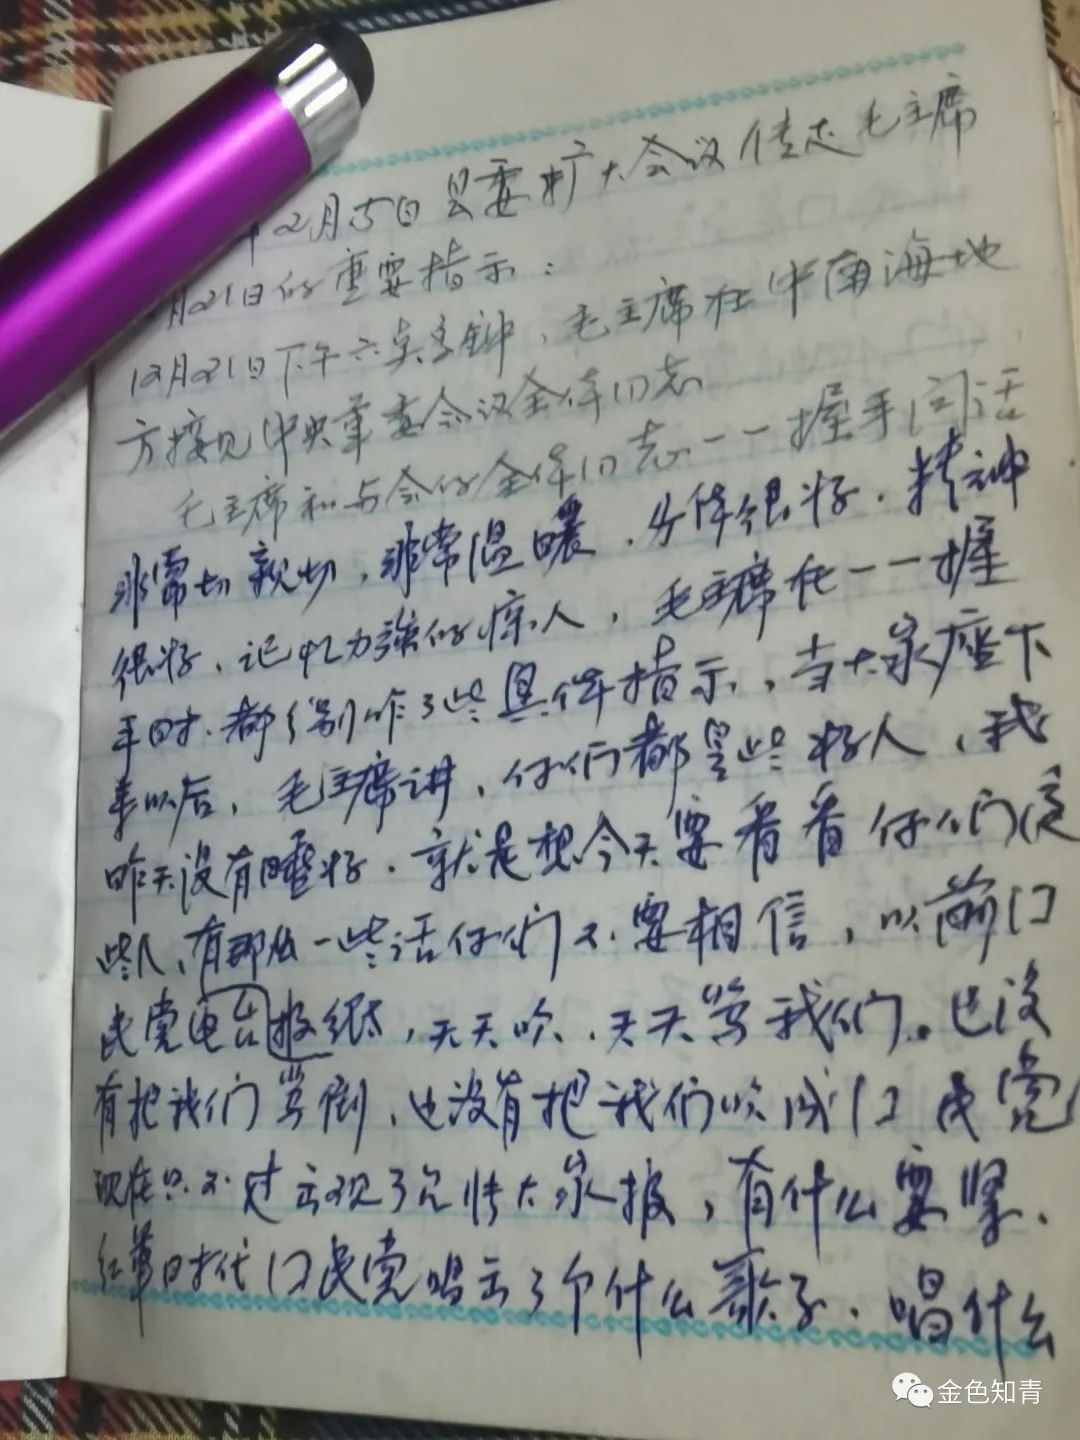 年2月5日县委扩大会议传达毛主席
月21日的重要指示：
12月21日下午六点多钟，毛主席在中南海地
方接见中央军委会议全体同志
毛主席和与会的全体同志一一握手问话
非常切亲切，非常温暖，身体很好，精神
很好，记忆力强的惊人，毛主席在一一握
手时，都分别作了些具体指示，当大家座下
来以后，毛主席讲，你们都是些好人，我
昨天没有睡好，就是想今天要看看你们这
些人，有那么一些话你们不要相信，以前囗
民党电台报纸，天天吹，天天骂我们。也没
有把我们骂倒，也没有把我们吹成囗民党
现在只不过出现了几张大家报，有什么要紧，
红军时代囗民党唱出了个什么歌子，唱什么
金色知青